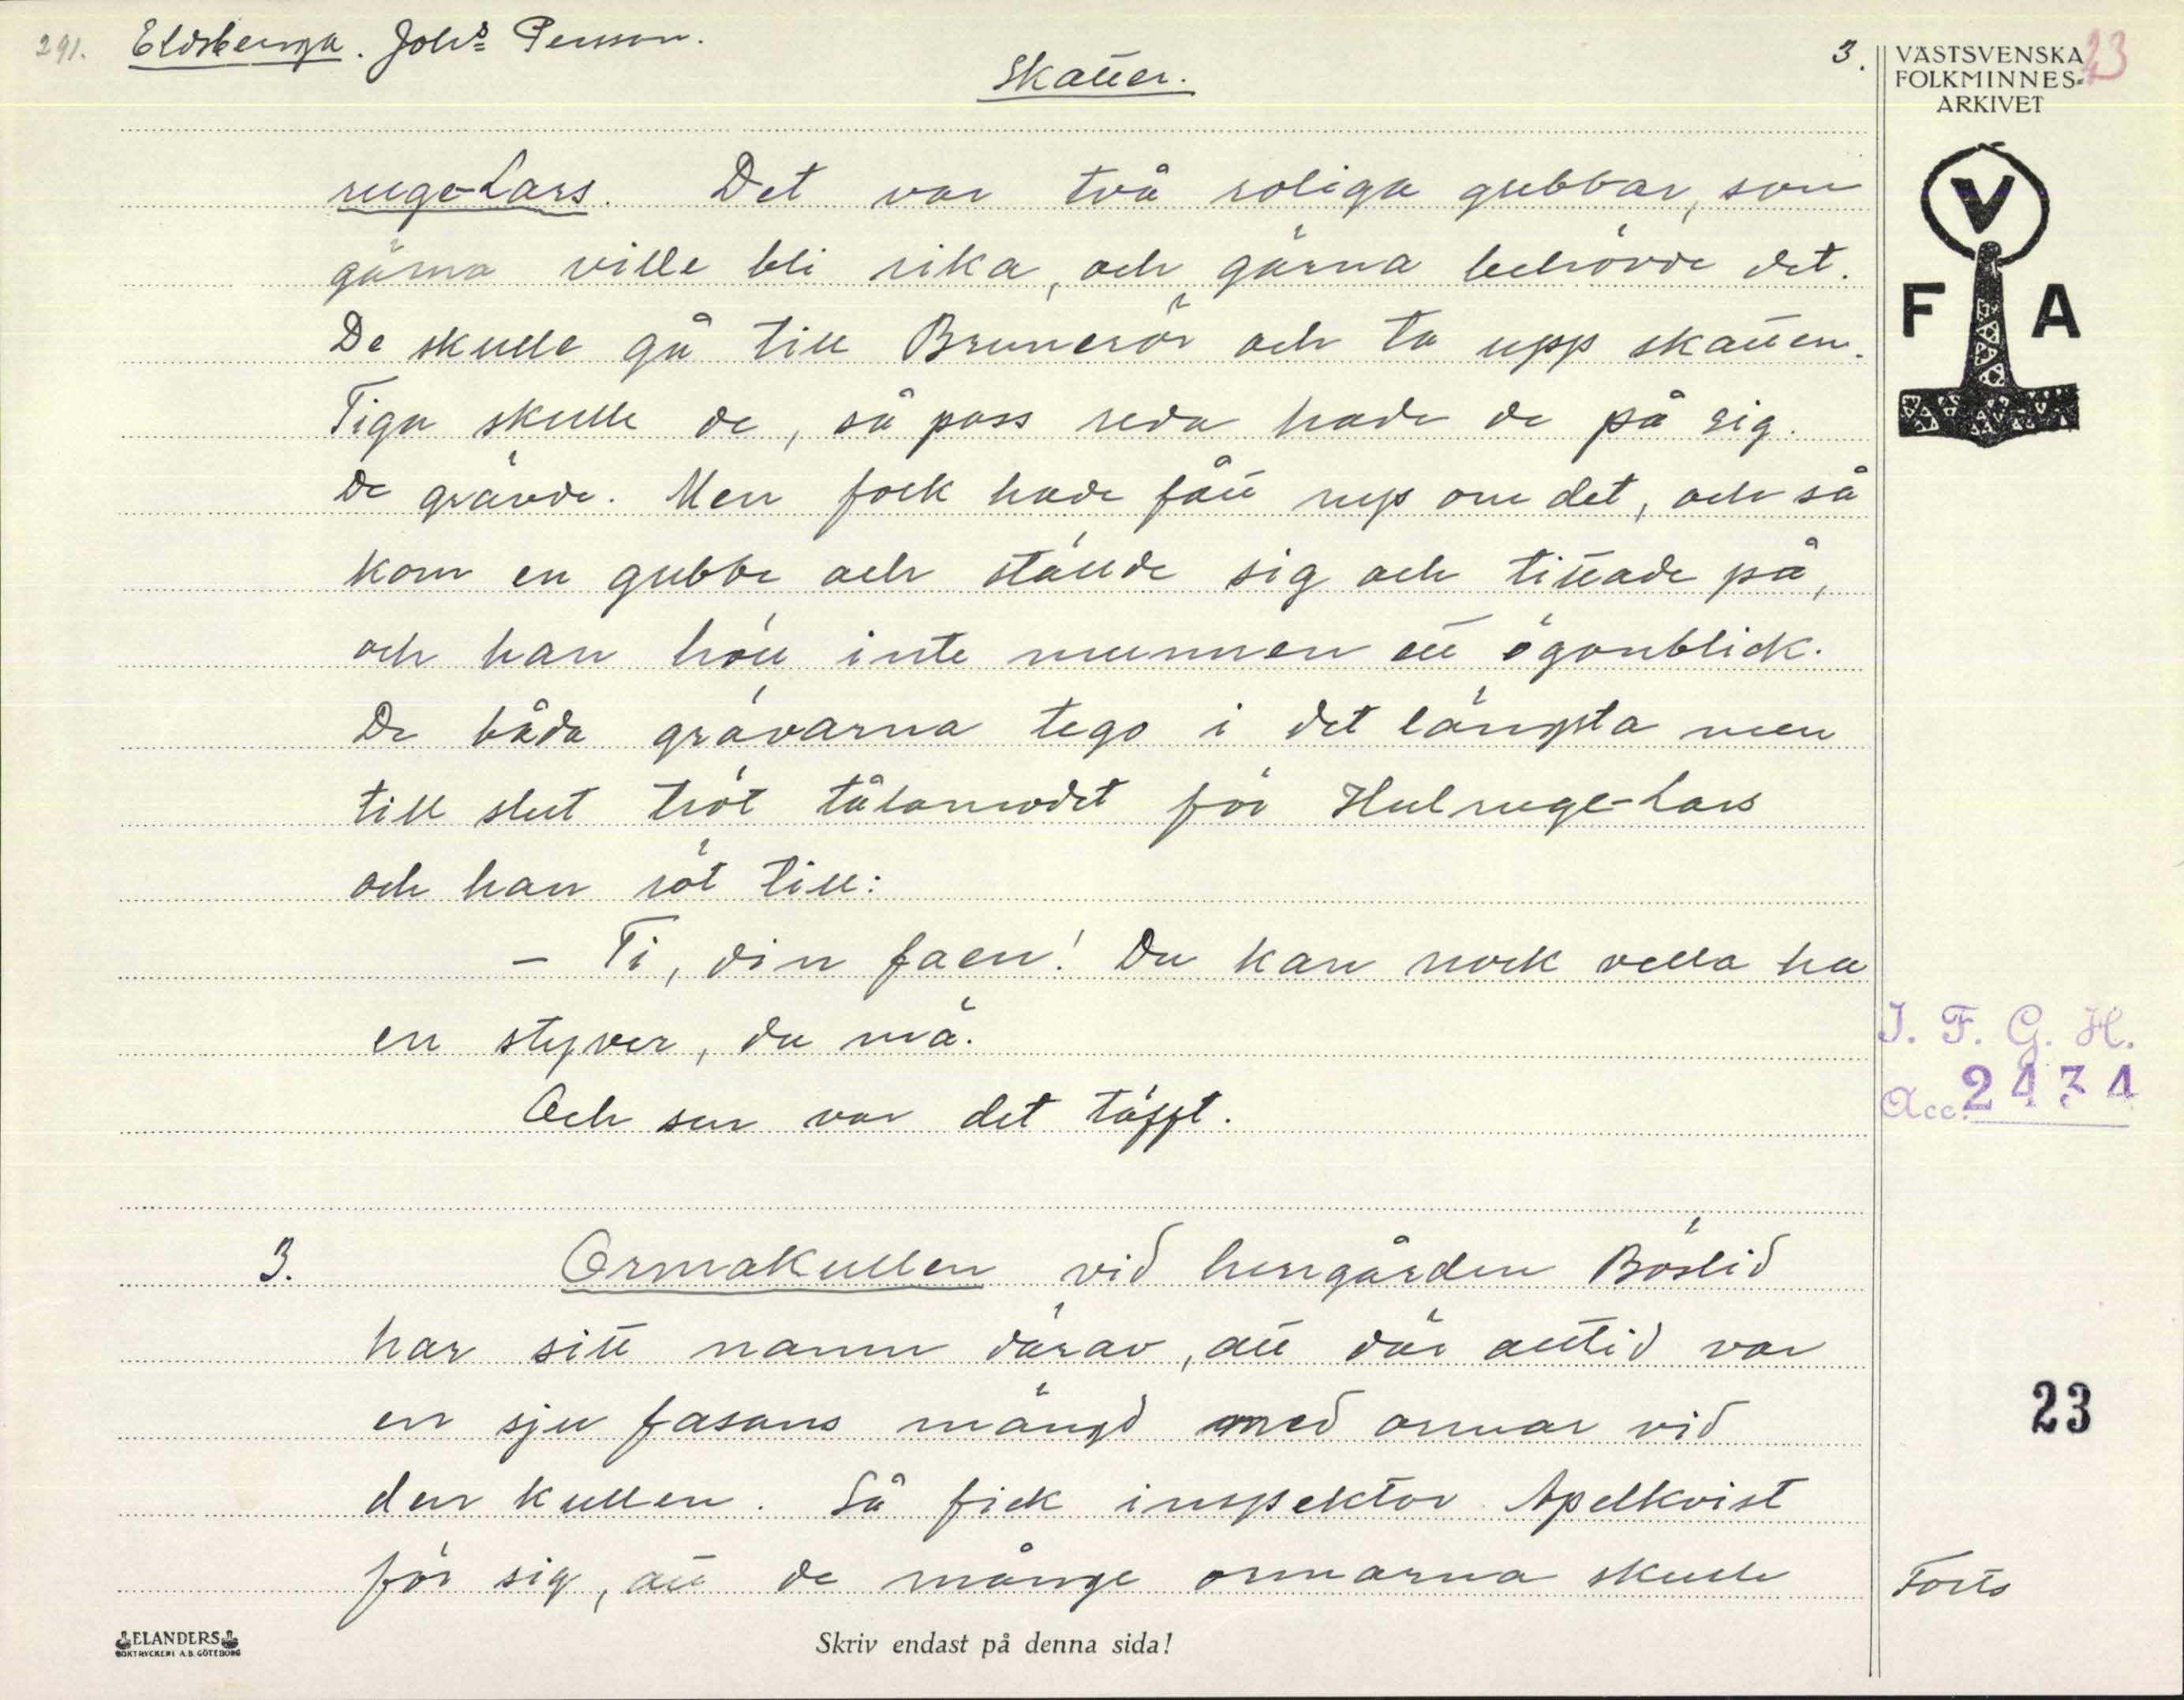 291. Eldsberga. Johs Persson.
Skatter.
3.
VÄSTSVENSKA
FOLKMINNES-
ARKIVET
23
V
F A
ruge-Lars. Det var två roliga gubbar, som
gärna ville bli rika, och gärna behövde det.
De skulle gå till Brunerör och ta upp skatten.
Tiga skulle de, så pass reda hade de på sig.
De grävde. Men folk hade fått nys om det, och så
kom en gubbe och ställde sig och tittade på,
och han höll inte munnen ett ögonblick.
De båda grävarna tego i det längsta men
till slut tröt tålamodet för Hulruge-Lars
och han röt till:
– Ti, din faen! Du kan nock vella ha
en styver, du mä.
Och sen var det täppt.
3. Ormakullen vid herrgården Böslid
har sitt namn därav, att där alltid var
en sju fasans mängd med ormar vid
den kullen. Så fick inspektor Apelkvist
för sig, att de många ormarna skulle
Forts
I. F. G. H.
Acc. 2434
23
ELANDERS
BOKTRYCKERI A.B. GÖTEBORG
Skriv endast på denna sida!